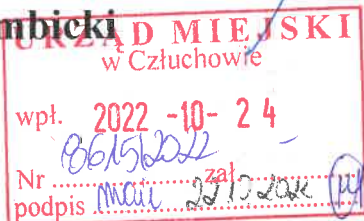 mbicki
URZĄD MIEJSKI
w Człuchowie
wpł. 2022 -10- 2 4
8615/2022
Nr ........... zał. –
podpis mail